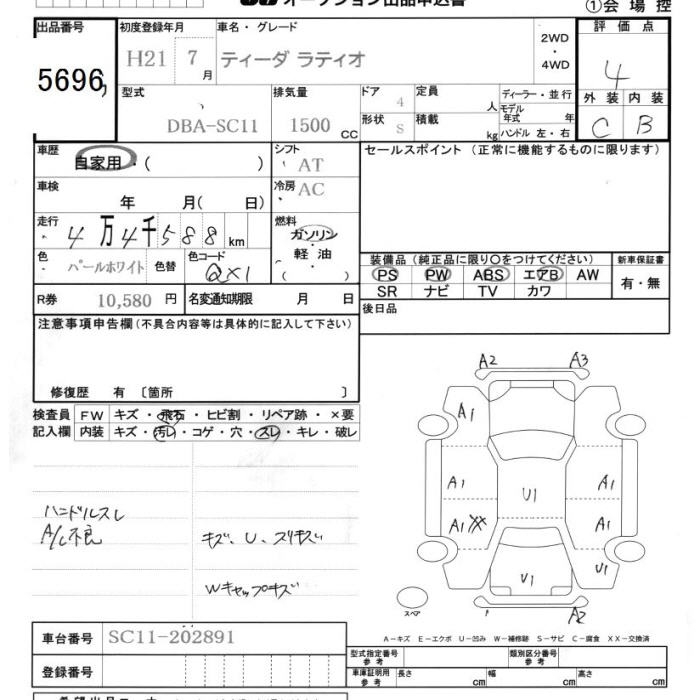 オークション出品申込書
①会場控
出品番号
5696
初度登録年月
H21 7月
車名・グレード
ティーダ ラティオ
2WD・4WD
評価点
4
外装 内装
C B
型式
DBA-SC11
排気量
1500 CC
ドア
4
形状
S
定員
人
積載
kg
ディーラー・並行
モデル年式 年
ハンドル 左・右
車歴
自家用・( )
シフト
AT
セールスポイント(正常に機能するものに限ります)
車検
年 月(日)
冷房
AC
走行
4万4千588km
燃料
ガソリン・軽油
( )
色
パールホワイト
色替
色コード
QX1
装備品(純正品に限り○をつけてください)
PS PW ABS エアB AW
SR ナビ TV カワ
新車保証書
有・無
R券
10,580円
名変通知期限 月 日
後日品
注意事項申告欄(不具合内容等は具体的に記入して下さい)
修復歴 有〔箇所 〕
検査員記入欄
FW キズ・飛石・ヒビ割・リペア跡・×要
内装 キズ・汚レ・コゲ・穴・スレ・キレ・破レ
ハンドルスレ
A/C不良
キズ、U、スリキズ
Wキャップキズ
A2 A3
A1
A1 U1 A1
A1 XX A1
U1 U1
A2
スペア
A-キズ E-エクボ U-凹み W-補修跡 S-サビ C-腐食 XX-交換済
車台番号
SC11-202891
登録番号
型式指定番号 参考
類別区分番号 参考
車庫証明用 参考
長さ cm 幅 cm 高さ cm